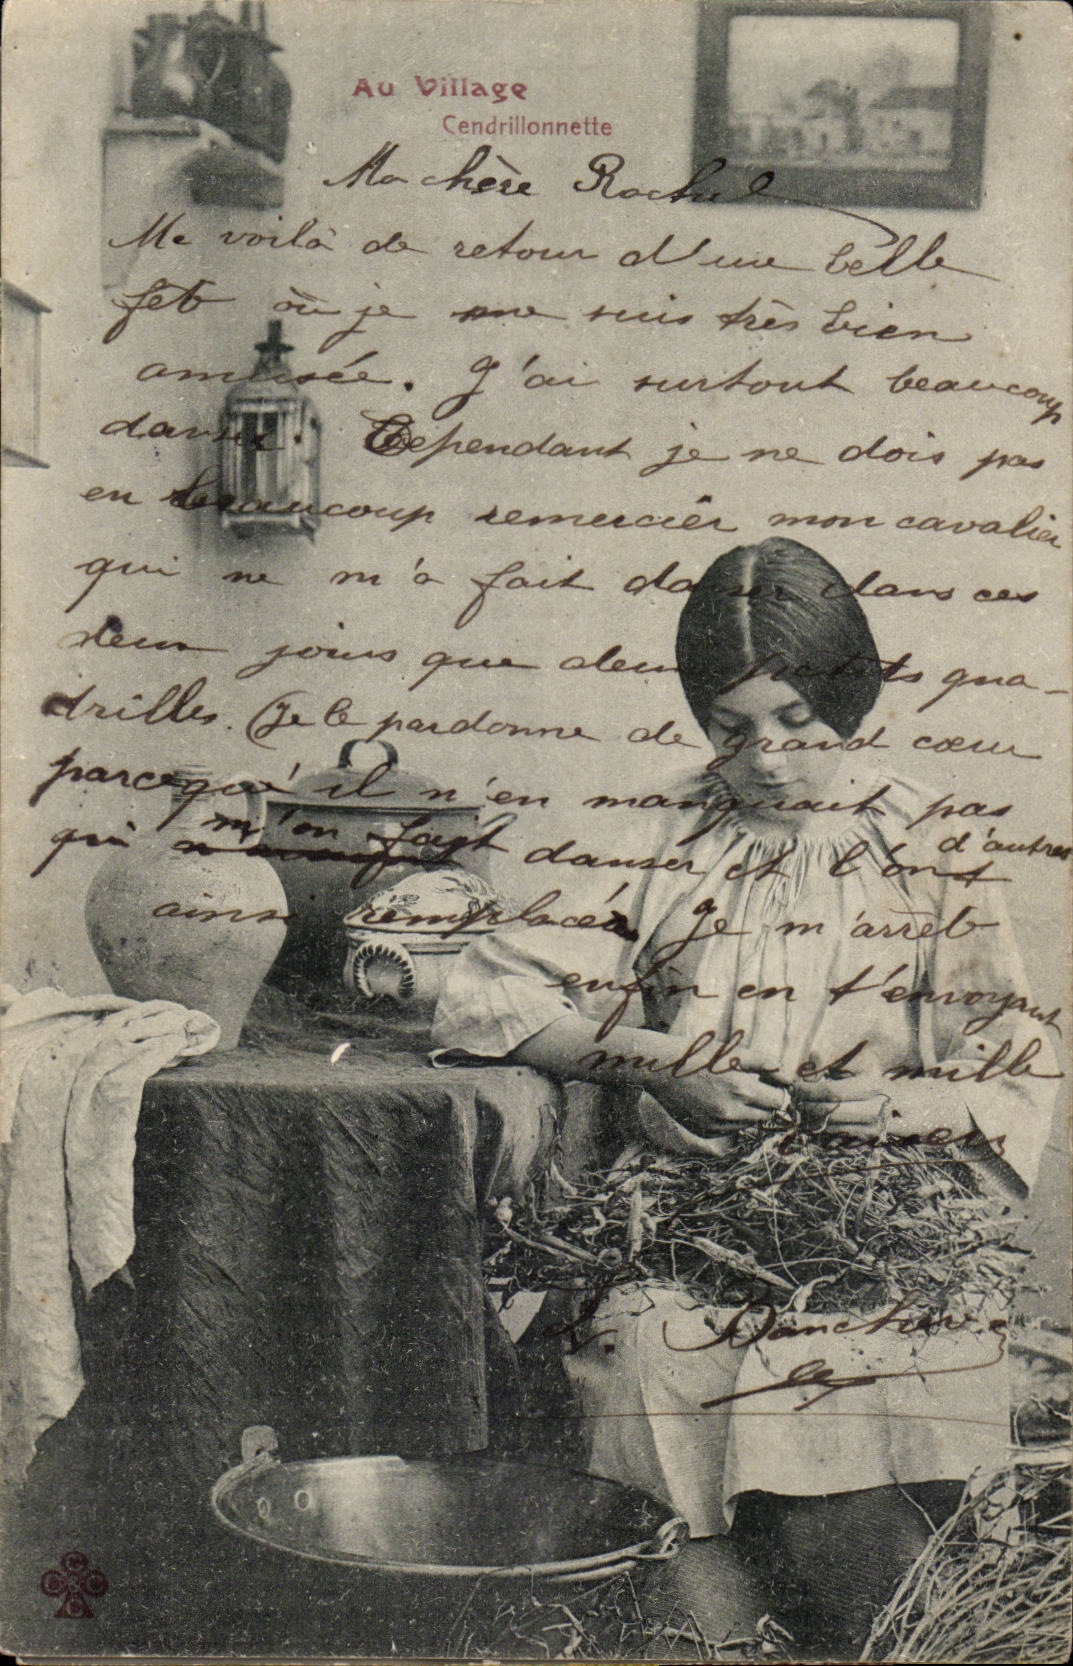 Au Village
Cendrillonnette
Ma chère Rachel
Me voilà de retour d'une belle
fête où je me suis très bien
amusée. J'ai surtout beaucoup
dansé. Cependant je ne dois pas
en beaucoup remercier mon cavalier
qui ne m'a fait danser dans ces
deux jours que deux petits qua-
drilles. (Je le pardonne de grand cœur
parceque il n'en manquait pas d'autres
qui m'on fayt danser et l'ont
ainsi remplacé. Je m'arrête
enfin en t'envoyant
mille et mille
baisers
CCCC